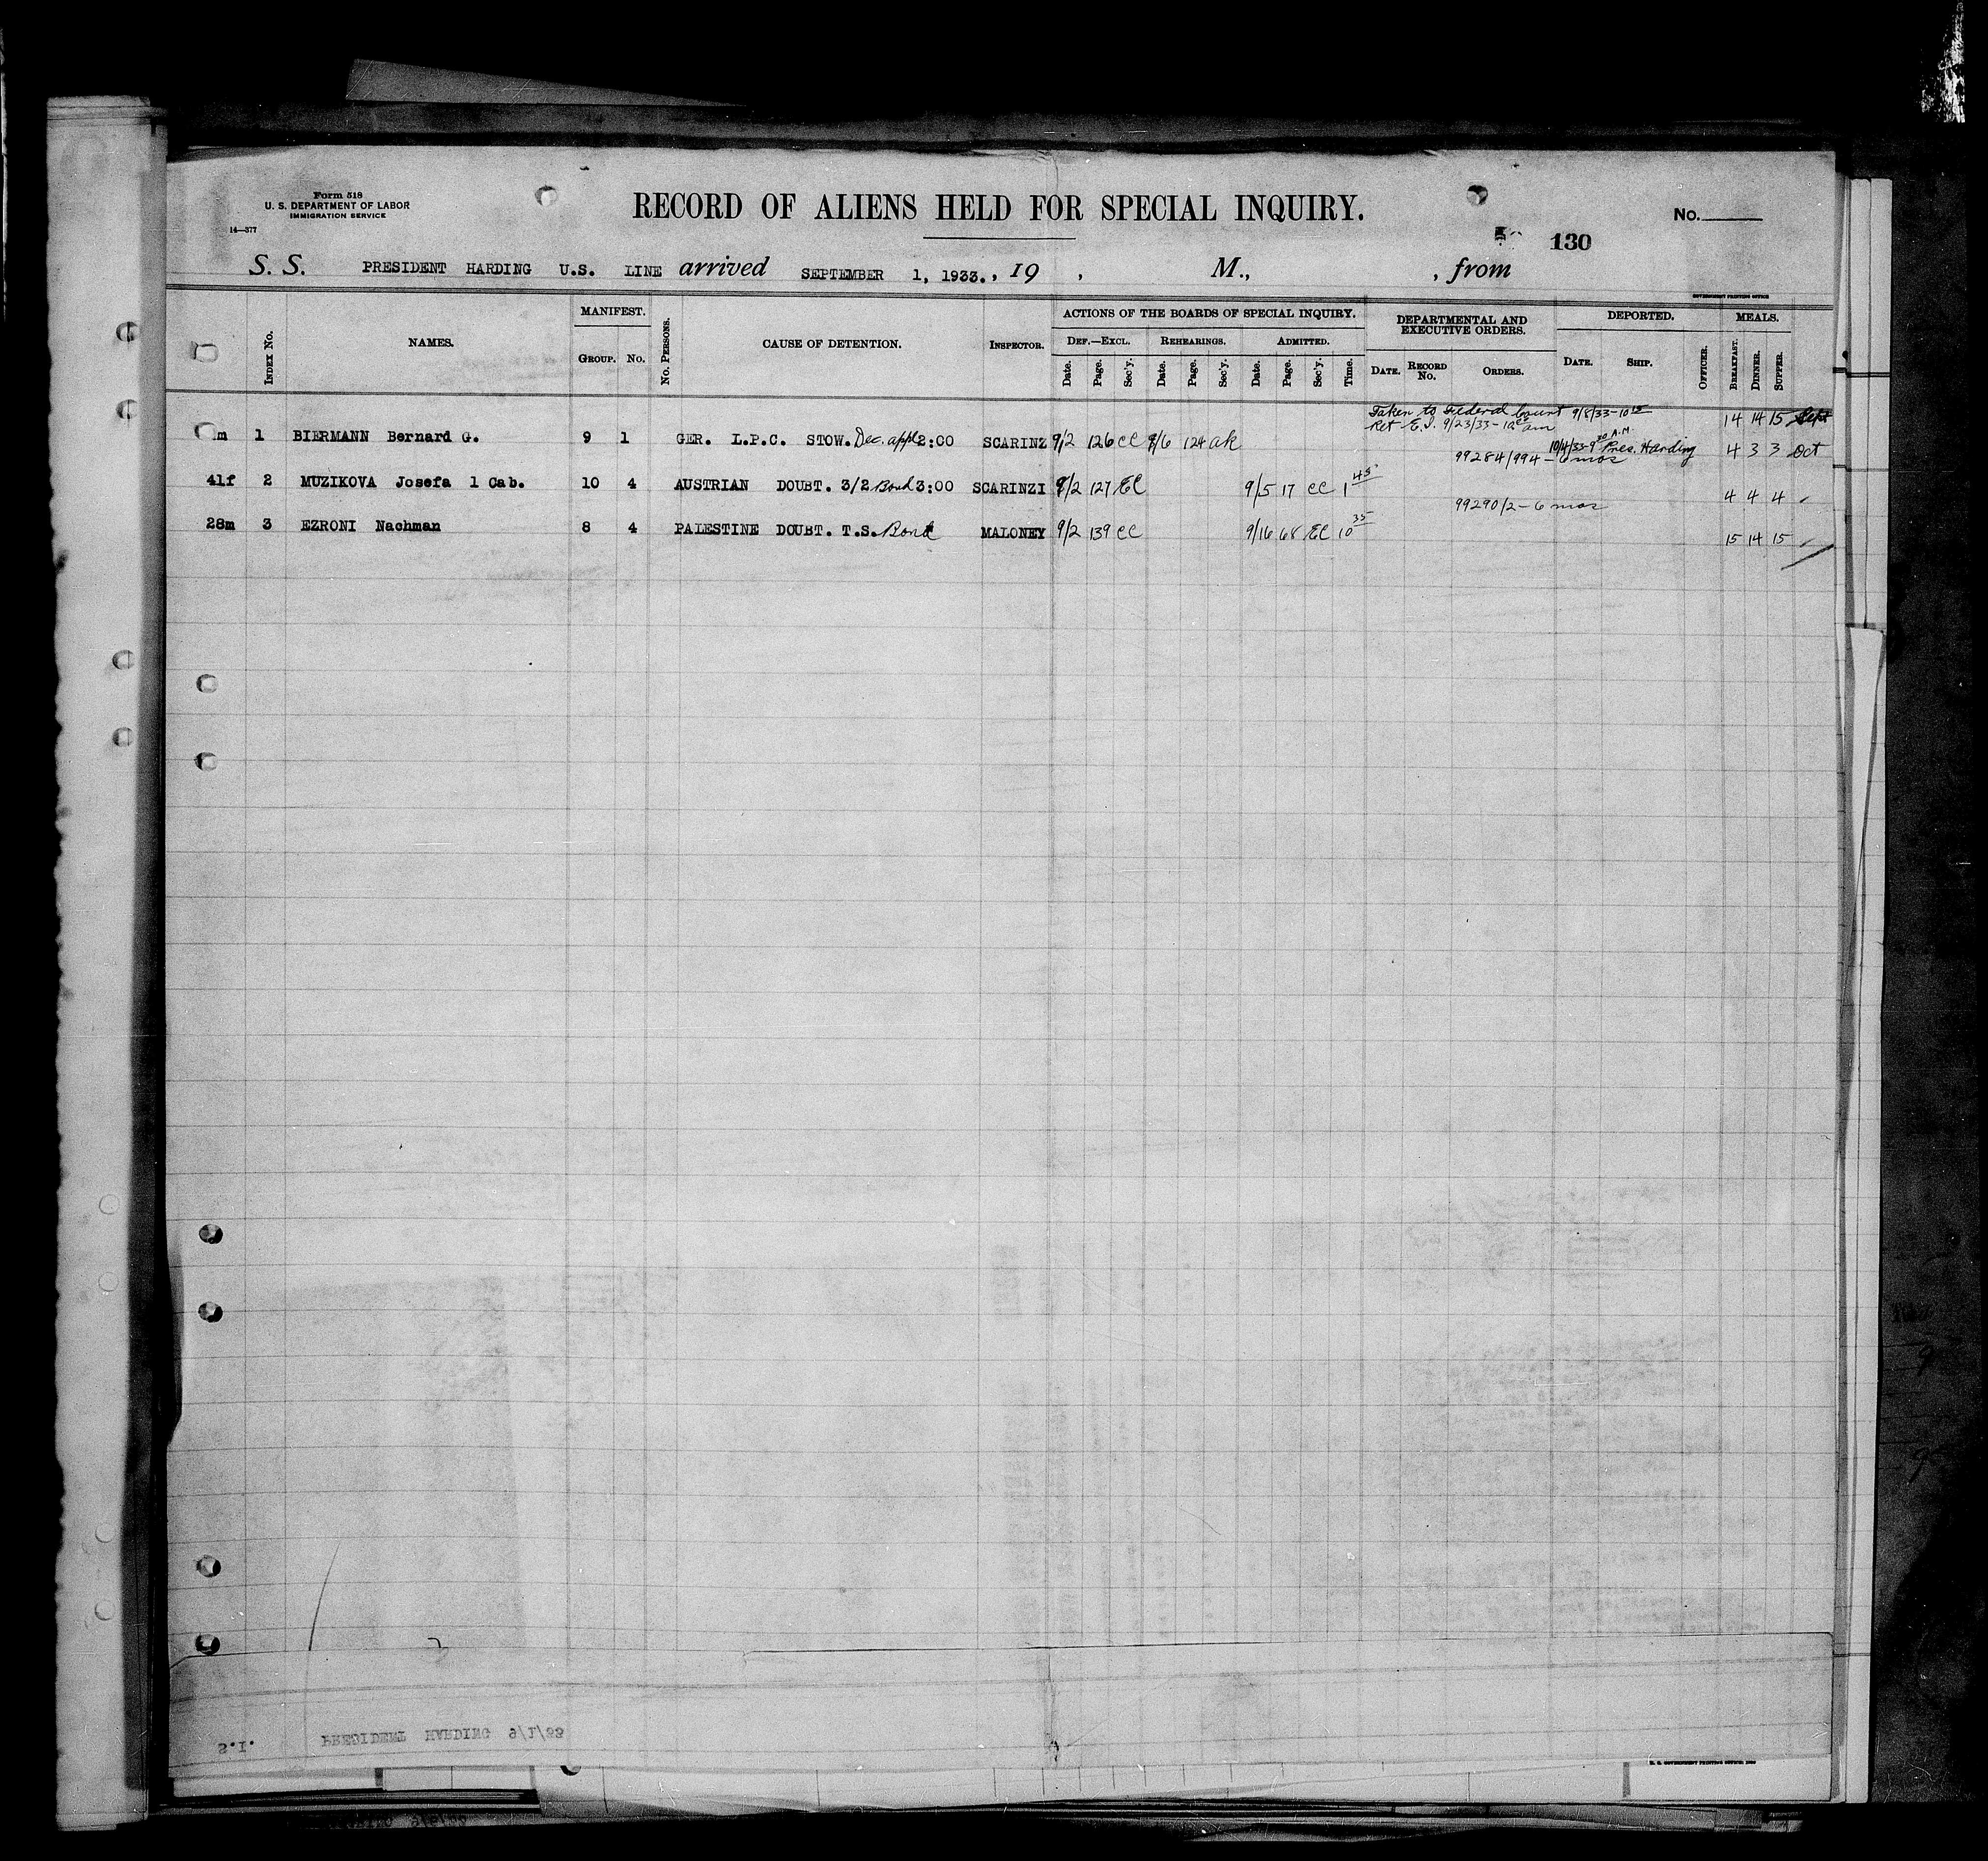 Form 518
U. S. DEPARTMENT OF LABOR
IMMIGRATION SERVICE
14—377
RECORD OF ALIENS HELD FOR SPECIAL INQUIRY.
No.
130
S. S. PRESIDENT HARDING U.S. LINE arrived SEPTEMBER 1, 1933. , 19 , M., , from
GOVERNMENT PRINTING OFFICE
INDEX No. NAMES. MANIFEST. GROUP. No. No. PERSONS. CAUSE OF DETENTION. INSPECTOR. ACTIONS OF THE BOARDS OF SPECIAL INQUIRY. DEPARTMENTAL AND EXECUTIVE ORDERS. DEPORTED. MEALS.
DEF.—EXCL. REHEARINGS. ADMITTED.
Date. Page. Sec'y. Date. Page. Sec'y. Date. Page. Sec'y. Time. DATE. RECORD No. ORDERS. DATE. SHIP. OFFICER. BREAKFAST. DINNER. SUPPER.
Taken to Federal Court 9/8/33-10 15 14 14 15 Sept
Ret E.I. 9/23/33-10 am
m 1 BIERMANN Bernard G. 9 1 GER. L.P.C. STOW. Dec. appl 2:00 SCARINZ 9/2 126 CC 9/6 124 ak
10/4/33-9 30 A.M. Pres. Harding 4 3 3 Oct
99284/994 - 6 mos
41f 2 MUZIKOVA Josefa 1 Cab. 10 4 AUSTRIAN DOUBT. 3/2 Bond 3:00 SCARINZI 9/2 127 EC 9/5 17 CC 1 45 4 4 4
99290/2 - 6 mos
28m 3 EZRONI Nachman 8 4 PALESTINE DOUBT. T.S. Bond MALONEY 9/2 139 CC 9/16 68 EC 10 35 15 14 15
S.I. PRESIDENT HARDING 9/1/33